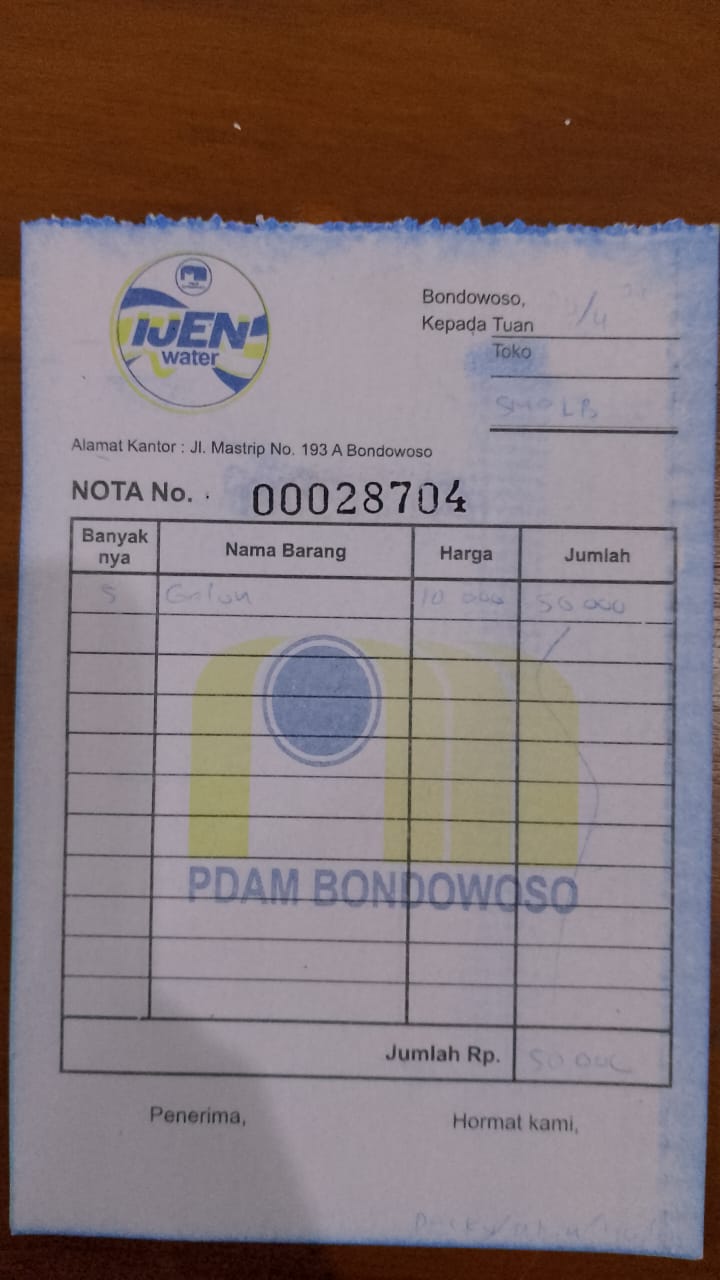 IJEN
water
Bondowoso, /4
Kepada Tuan
Toko
SMPLB
Alamat Kantor : Jl. Mastrip No. 193 A Bondowoso
NOTA No. 00028704
Banyak nya Nama Barang Harga Jumlah
5 Galon 10 000 50 000
PDAM BONDOWOSO
Jumlah Rp. 50 000
Penerima, Hormat kami,